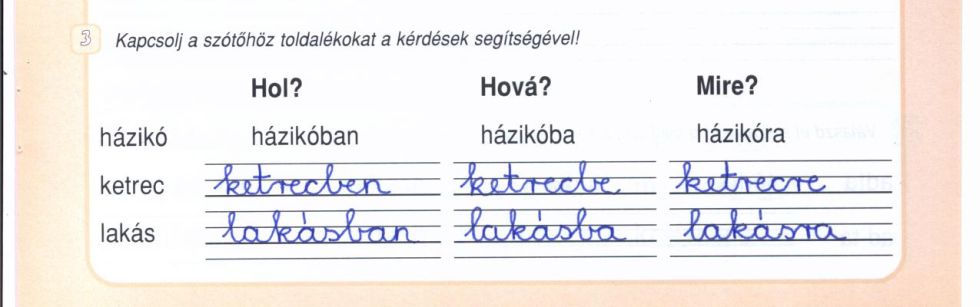 3 Kapcsolj a szótőhöz toldalékokat a kérdések segítségével!
Hol? Hová? Mire?
házikó házikóban házikóba házikóra
ketrec ketrecben ketrecbe ketrecre
lakás lakásban lakásba lakásra